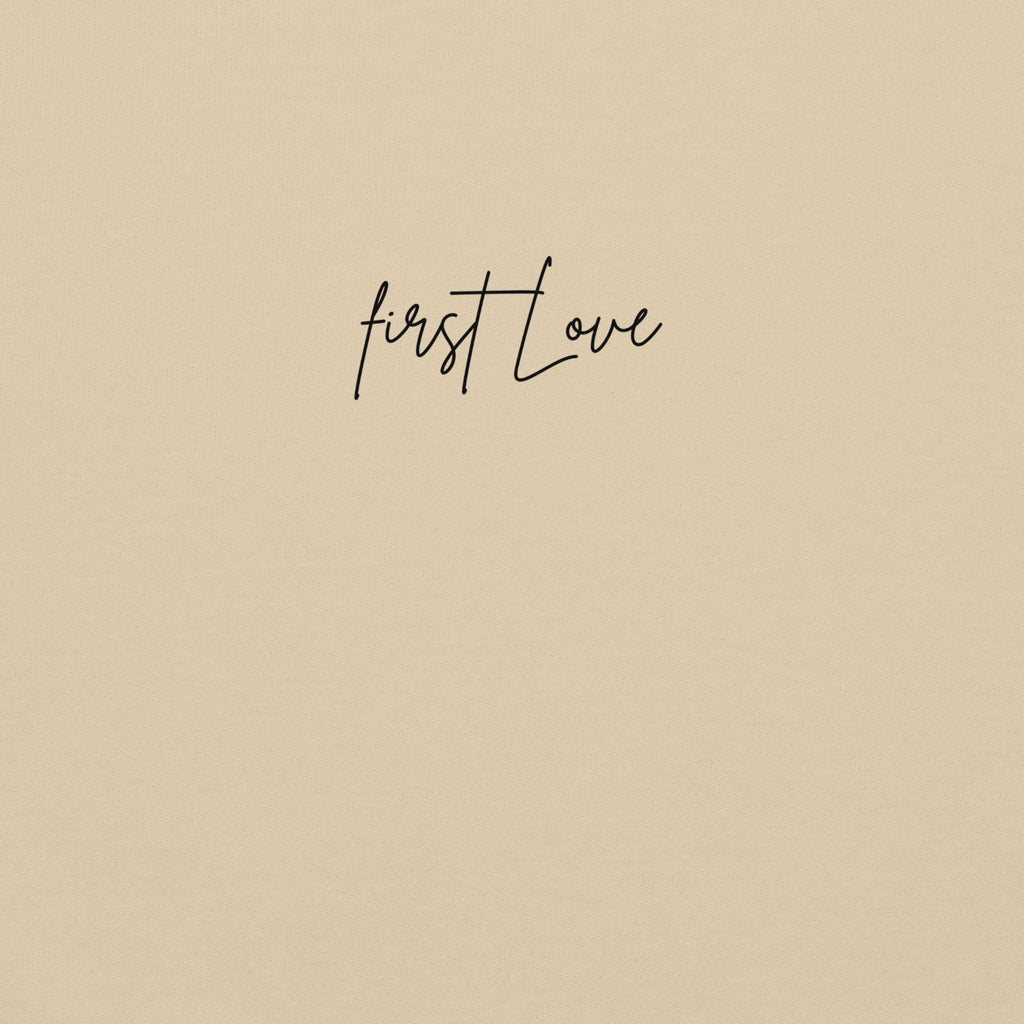 first Love